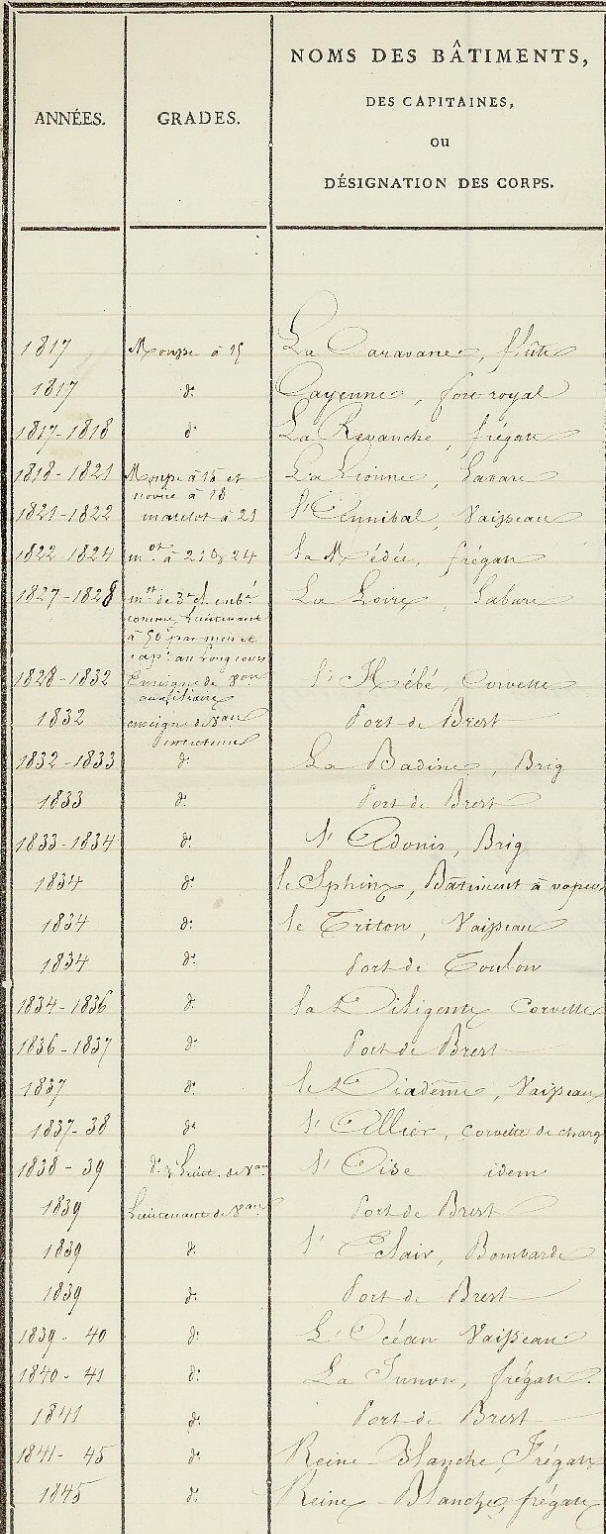 ANNÉES. GRADES. NOMS DES BÂTIMENTS,
DES CAPITAINES,
OU
DÉSIGNATION DES CORPS.
1817 Mousse à 15 La Caravane, flûte
1817 do Cayenne, fort royal
1817-1818 do La Revanche, frégate
1818-1821 Mousse à 15 et La Lionne, Gabare
novice à 18
1821-1822 matelot à 21 l'Annibal, Vaisseau
1822-1824 mot à 21 & 24 la Médée, frégate
1827-1828 mot de 3e cl. embé La Loire, Gabare
comme Lieutenant
à 50 par mois et
cape au long cours
1828-1832 Enseigne de Veau l'Hébé, Corvette
auxiliaire
1832 enseigne de Veau Port de Brest
1832-1833 do La Badine, Brig
1833 do Port de Brest
1833-1834 do l'Adonis, Brig
1834 do le Sphinx, Bâtiment à vapeur
1834 do le Triton, Vaisseau
1834 do Port de Toulon
1834-1836 do la Diligente Corvette
1836-1837 do Port de Brest
1837 do le Diadême, Vaisseau
1837-38 do l'Allier, corvette de charg
1838-39 do & Lieut. de Veau l'Oise idem
1839 Lieutenant de Veau Port de Brest
1839 do l'Eclair, Bombarde
1839 do Port de Brest
1839-40 do L'Océan Vaisseau
1840-41 do La Junon, frégate.
1841 do Port de Brest
1841-45 do Reine-Blanche, Frégate
1845 do Reine-Blanche, frégate